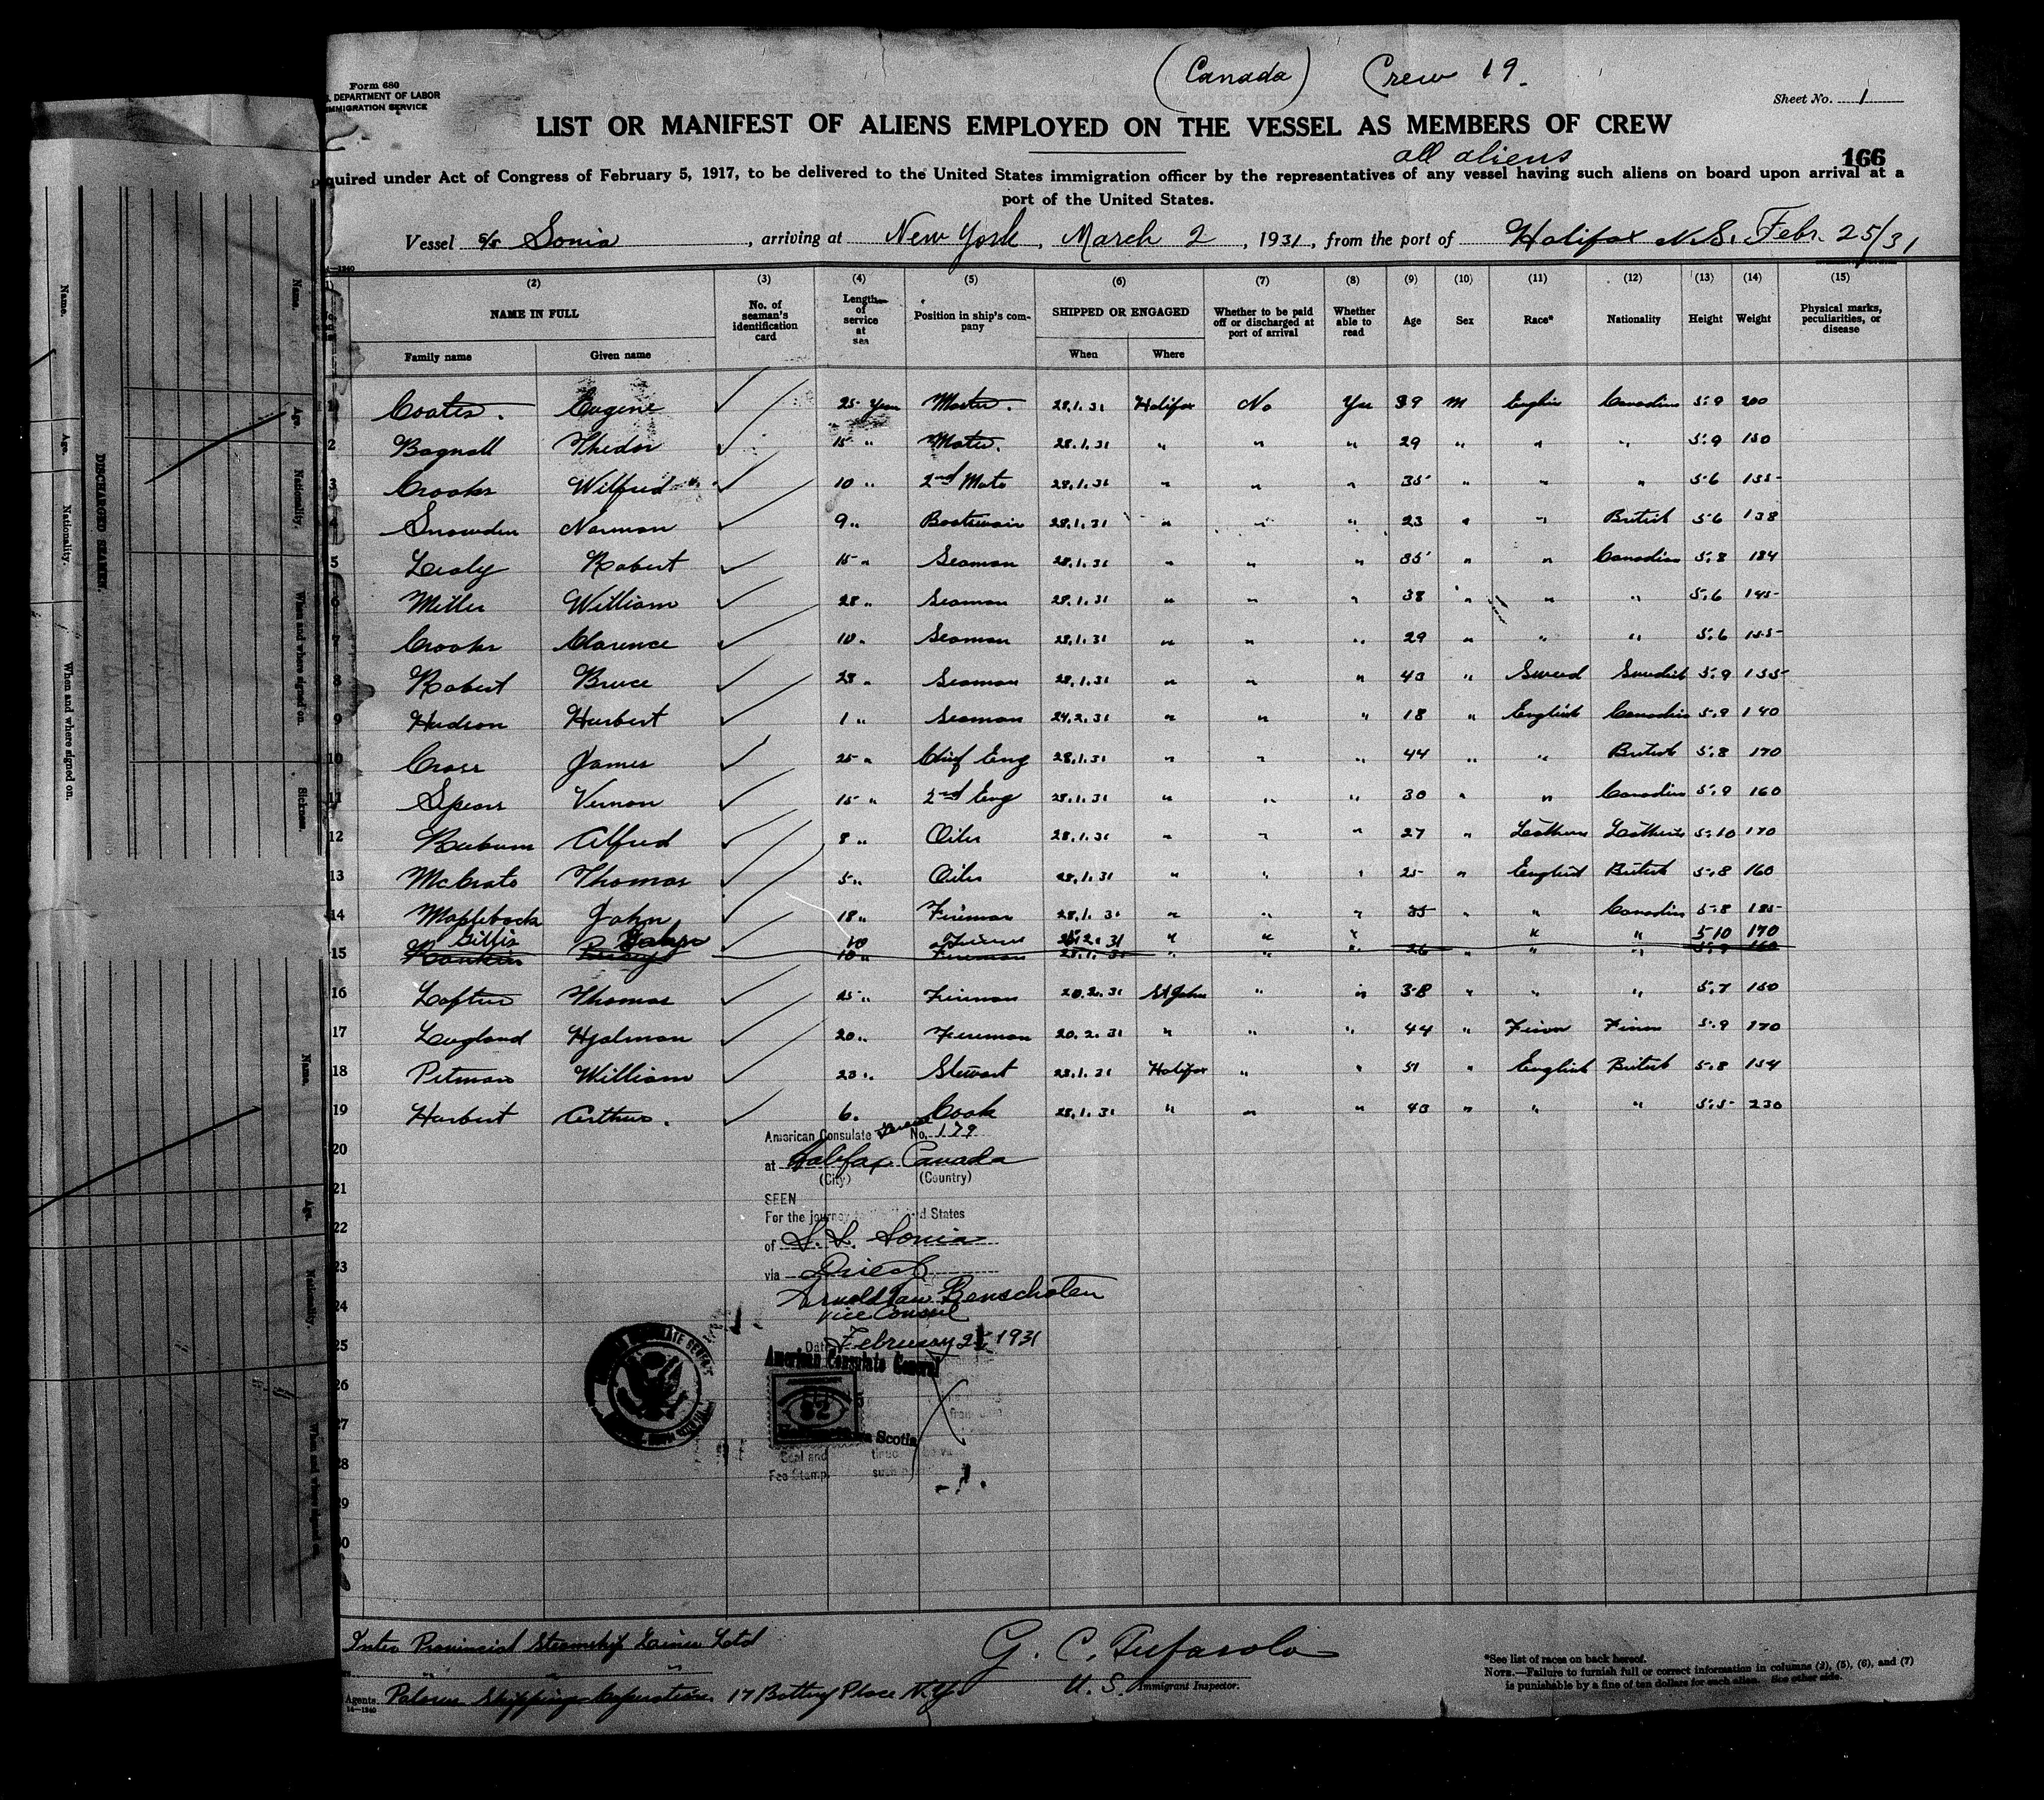 (Canada) Crew 19.
Form 680
DEPARTMENT OF LABOR
IMMIGRATION SERVICE
Sheet No. 1
LIST OR MANIFEST OF ALIENS EMPLOYED ON THE VESSEL AS MEMBERS OF CREW
all aliens
166
quired under Act of Congress of February 5, 1917, to be delivered to the United States immigration officer by the representatives of any vessel having such aliens on board upon arrival at a
port of the United States.
Vessel S/S Sonia, arriving at New York, March 2, 1931, from the port of Halifax N.S. Febr. 25/31
(2) (3) (4) (5) (6) (7) (8) (9) (10) (11) (12) (13) (14) (15)
NAME IN FULL No. of seaman's identification card Length of service at sea Position in ship's company SHIPPED OR ENGAGED Whether to be paid off or discharged at port of arrival Whether able to read Age Sex Race* Nationality Height Weight Physical marks, peculiarities, or disease
Family name Given name When Where
1 Coates. Eugene 25 Year Master. 28.1.31 Halifax No Yes 39 M English Canadian 5.9 200
2 Bagnall Thedor 15 " Mate. 28.1.31 " " " 29 " " " 5.9 150
3 Crooks Wilfred 10 " 2nd Mate 28.1.31 " " " 35 " " " 5.6 155
4 Snowden Norman 9 " Boatswain 28.1.31 " " " 23 " " British 5.6 138
5 Robert 15 " Seaman 28.1.31 " " " 35 " " Canadian 5.8 184
6 Miller William 28 " Seaman 28.1.31 " " " 38 " " " 5.6 145
7 Crooks Clarence 10 " Seaman 28.1.31 " " " 29 " " " 5.6 155
8 Robert Bruce 28 " Seaman 28.1.31 " " " 43 " Sweed Swedish 5.9 155
9 Hudson Herbert 1 " Seaman 24.2.31 " " " 18 " English Canadian 5.9 140
10 Cross James 25 " Chief Eng 28.1.31 " " " 44 " " British 5.8 170
11 Spears Vernon 15 " 2nd Eng 28.1.31 " " " 30 " " Canadian 5.9 160
12 Alfred 8 " Oiler 28.1.31 " " " 27 " 5.10 170
13 Thomas 5 " Oiler 28.1.31 " " " 25 " English British 5.8 160
14 John 18 " Fireman 28.1.31 " " " 35 " " Canadian 5.8 185
Gillis 10 Fireman 31 " " " " " 5 10 170
15 Rankin 10 " Fireman 28.1.31 " " " 26 " " " 5.9 160
16 Loftus Thomas 25 " Fireman 20.2.31 St John " " 38 " " " 5.7 150
17 Hjalmar 20 " Fireman 20.2.31 " " " 44 " 5.9 170
18 Pitman William 23 " Stewart 28.1.31 Halifax " " 51 " English British 5.8 154
19 Harbert Arthur. 6 " Cook 28.1.31 " " " 43 " " " 5.5 230
20
21
22
23
24
25
26
27
28
29
American Consulate General No. 179
at Halifax Canada
(City) (Country)
SEEN
For the journey to the United States
of S.S. Sonia
via Direct
Arnold Van Benschoten
Vice Consul
Date February 25, 1931
American Consulate General
Scotia
Seal and
Fee Stamp.
Inter Provincial Steamship Lines Ltd
G. C. Tufarolo
U. S. Immigrant Inspector.
Agents. Shipping Corporation. 17 Battery Place N.Y.
14—1240
*See list of races on back hereof.
NOTE.—Failure to furnish full or correct information in columns (2), (5), (6), and (7)
is punishable by a fine of ten dollars for each alien. See other side.
DISCHARGED SEAMEN.
Name. Age. Nationality. When and where signed on.
Name. Age. Nationality. When and where signed on. Sickness.
Name. Age. Nationality. When and where signed on.